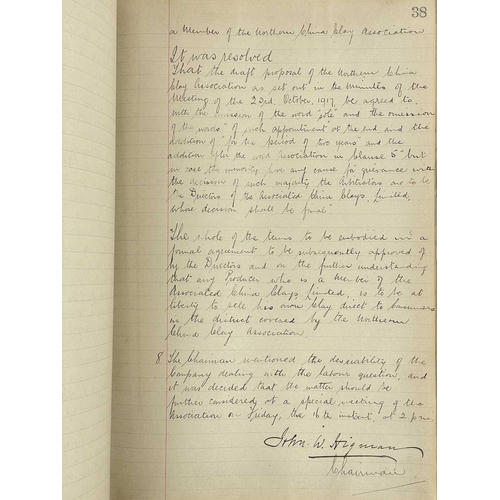 38
a Member of the Northern China Clay Association
It was resolved
That the draft proposal of the Northern China
Clay Association as set out in the Minutes of the
Meeting of the 23rd. October, 1917, be agreed to,
with the omission of the word "sole" and the omission
of the words "of such appointment" at the end and the
addition of "for the period of two years" and the
addition after the word Association in Clause 5 "but
in case the minority have any cause for grievance with
the decision of such majority the Arbitrators are to be
the Directors of the Associated China Clays, Limited,
whose decision shall be final"
The whole of the terms to be embodied in a
formal agreement to be subsequently approved of
by the Directors and on the further understanding
that any Producer who is a Member of the
Associated China Clays, Limited, is to be at
liberty to sell his own Clay direct to Consumers
in the district covered by the Northern
China Clay Association
8. The Chairman mentioned the desirability of the
Company dealing with the labour question, and
it was decided that the matter should be
further considered at a special meeting of the
Association on Friday, the 16th instant, at 2 p.m.
John W. Higman
Chairman